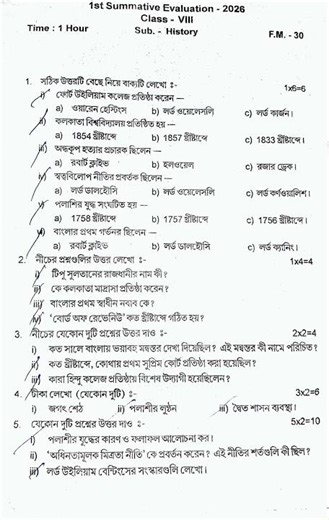 1st Summative Evaluation - 2026
Class - VIII
Time : 1 Hour Sub. - History F.M. - 30
1. সঠিক উত্তরটি বেছে নিয়ে বাক্যটি লেখো :- 1x6=6
i) ফোর্ট উইলিয়াম কলেজ প্রতিষ্ঠা করেন —
a) ওয়ারেন হেস্টিংস b) লর্ড ওয়েলেসলি c) লর্ড কার্জন।
ii) কলকাতা বিশ্ববিদ্যালয় প্রতিষ্ঠিত হয় —
a) 1854 খ্রীষ্টাব্দে b) 1857 খ্রীষ্টাব্দে c) 1833 খ্রীষ্টাব্দে।
iii) অন্ধকূপ হত্যার প্রচারক ছিলেন —
a) রবার্ট ক্লাইভ b) হলওয়েল c) রজার ড্রেক।
iv) স্বত্ববিলোপ নীতির প্রবর্তক ছিলেন —
a) লর্ড ডালহৌসি b) লর্ড ওয়েলেসলি c) লর্ড কর্ণওয়ালিশ।
v) পলাশির যুদ্ধ সংঘটিত হয় —
a) 1758 খ্রীষ্টাব্দে b) 1757 খ্রীষ্টাব্দে c) 1756 খ্রীষ্টাব্দে।
vi) বাংলার প্রথম গর্ভনর ছিলেন —
a) রবার্ট ক্লাইভ b) লর্ড ডালহৌসি c) লর্ড ক্যানিং।
2. নীচের প্রশ্নগুলির উত্তর লেখো :- 1x4=4
i) টিপু সুলতানের রাজধানীর নাম কী?
ii) কে কলকাতা মাদ্রাসা প্রতিষ্ঠা করেন?
iii) বাংলার প্রথম স্বাধীন নবাব কে?
iv) 'বোর্ড অফ রেভেনিউ' কত খ্রীষ্টাব্দে গঠিত হয়?
3. নীচের যেকোন দুটি প্রশ্নের উত্তর দাও :- 2x2=4
i) কত সালে বাংলায় ভয়াবহ মন্বন্তর দেখা দিয়েছিল? এই মন্বন্তর কী নামে পরিচিত?
ii) কত খ্রীষ্টাব্দে, কোথায় প্রথম সুপ্রিম কোর্ট প্রতিষ্ঠা করা হয়েছিল?
iii) কারা হিন্দু কলেজ প্রতিষ্ঠায় বিশেষ উদ্যোগী হয়েছিলেন?
4. টীকা লেখো (যেকোন দুটি) :- 3x2=6
i) জগৎ শেঠ ii) পলাশীর লুণ্ঠন iii) দ্বৈত শাসন ব্যবস্থা।
5. যেকোন দুটি প্রশ্নের উত্তর দাও :- 5x2=10
i) পলাশীর যুদ্ধের কারণ ও ফলাফল আলোচনা কর।
ii) 'অধিনতামূলক মিত্রতা নীতি' কে প্রবর্তন করেন? এই নীতির শর্তগুলি কী ছিল?
iii) লর্ড উইলিয়াম বেন্টিংসের সংস্কারগুলি লেখো।